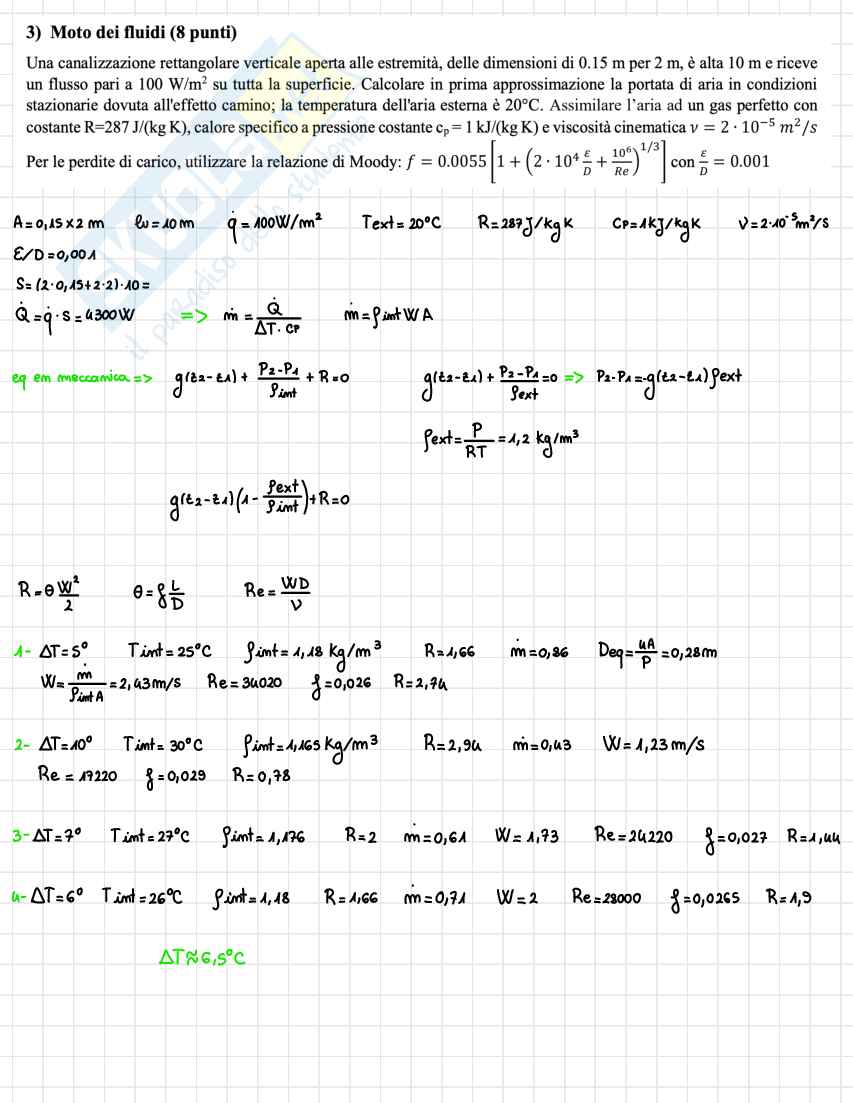 3) Moto dei fluidi (8 punti)
Una canalizzazione rettangolare verticale aperta alle estremità, delle dimensioni di 0.15 m per 2 m, è alta 10 m e riceve
un flusso pari a 100 W/m² su tutta la superficie. Calcolare in prima approssimazione la portata di aria in condizioni
stazionarie dovuta all'effetto camino; la temperatura dell'aria esterna è 20°C. Assimilare l'aria ad un gas perfetto con
costante R=287 J/(kg K), calore specifico a pressione costante cp = 1 kJ/(kg K) e viscosità cinematica ν = 2 · 10⁻⁵ m²/s
Per le perdite di carico, utilizzare la relazione di Moody: f = 0.0055 [1 + (2 · 10⁴ ε/D + 10⁶/Re)^1/3] con ε/D = 0.001
A=0,15×2 m lw=10m q̇=100W/m² Text=20°C R=287J/kgK CP=1kJ/kgK ν=2·10⁻⁵m²/s
ε/D=0,001
S=(2·0,15+2·2)·10=
Q̇=q̇·S=4300W => ṁ=Q̇/(ΔT·CP) ṁ=ρintWA
eq em meccanica=> g(z2-z1)+(P2-P1)/ρint+R=0 g(z2-z1)+(P2-P1)/ρext=0 => P2-P1=-g(z2-z1)ρext
ρext=P/RT=1,2 kg/m³
g(z2-z1)(1-ρext/ρint)+R=0
R=θW²/2 θ=fL/D Re=WD/ν
1- ΔT=5° Tint=25°C ρint=1,18 kg/m³ R=1,66 ṁ=0,86 Deq=4A/P=0,28m
W=ṁ/(ρintA)=2,43m/s Re=34020 f=0,026 R=2,74
2- ΔT=10° Tint=30°C ρint=1,165kg/m³ R=2,94 ṁ=0,43 W=1,23m/s
Re=17220 f=0,029 R=0,78
3-ΔT=7° Tint=27°C ρint=1,176 R=2 ṁ=0,61 W=1,73 Re=24220 f=0,027 R=1,44
4-ΔT=6° Tint=26°C ρint=1,18 R=1,66 ṁ=0,71 W=2 Re=28000 f=0,0265 R=1,9
ΔT≈6,5°C
il paradiso dello studente